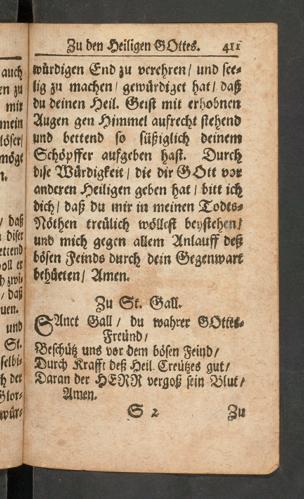 Zu den Heiligen GOttes. 411
würdigen End zu verehren / und see-
lig zu machen / gewürdiget hat / daß
du deinen Heil. Geist mit erhobnen
Augen gen Himmel aufrecht stehend
und bettend so süßiglich deinem
Schöpffer aufgeben hast. Durch
dise Würdigkeit / die dir GOtt vor
anderen Heiligen geben hat / bitt ich
dich / daß du mir in meinen Todts-
Nöthen treülich wöllest beystehen /
und mich gegen allem Anlauff deß
bösen Feinds durch dein Gegenwart
behüeten / Amen.
Zu St. Gall.
SAnct Gall / du wahrer GOttes-
Freünd /
Beschütz uns vor dem bösen Feind /
Durch Krafft deß Heil. Creützes gut /
Daran der HERR vergoß sein Blut /
Amen.
S 2 Zu
auch
en zu
mir
mein
löser /
möge
n.
/ daß
diser
ettend
oll er
/ daß
uen.
und
St.
selbi-
h der
Glor-
wür-